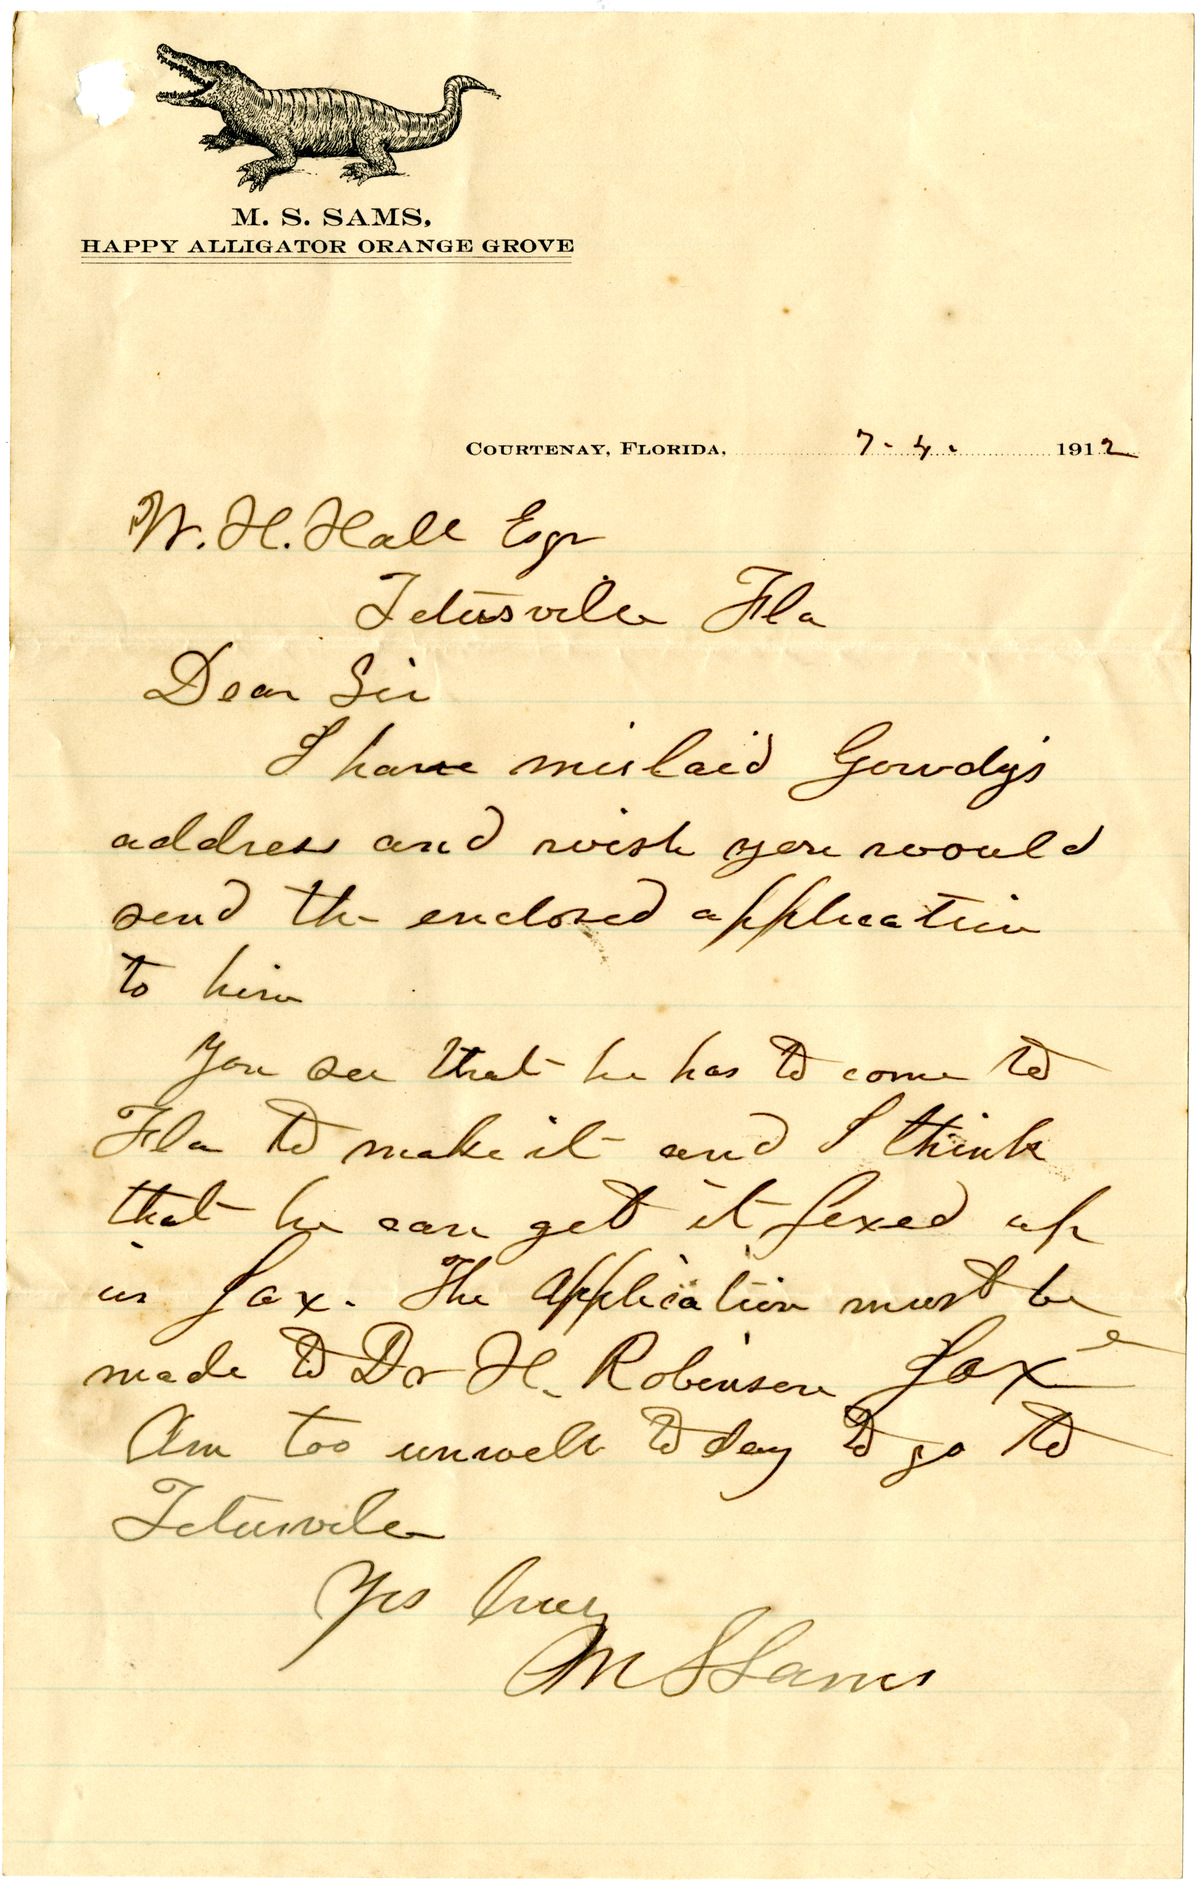 M. S. SAMS,
HAPPY ALLIGATOR ORANGE GROVE
COURTENAY, FLORIDA, 7-4. 1912
W. H. Hall Esqr
Titusville Fla
Dear Sir
I have mislaid Gowdys
address and wish you would
send the enclosed application
to him
You see that he has to come to
Fla to make it and I think
that he can get it fixed up
in Jax. The application must be
made to Dr H. Robinson Jax
Am too unwell to day to go to
Titusville
Yrs truly
M S Sams